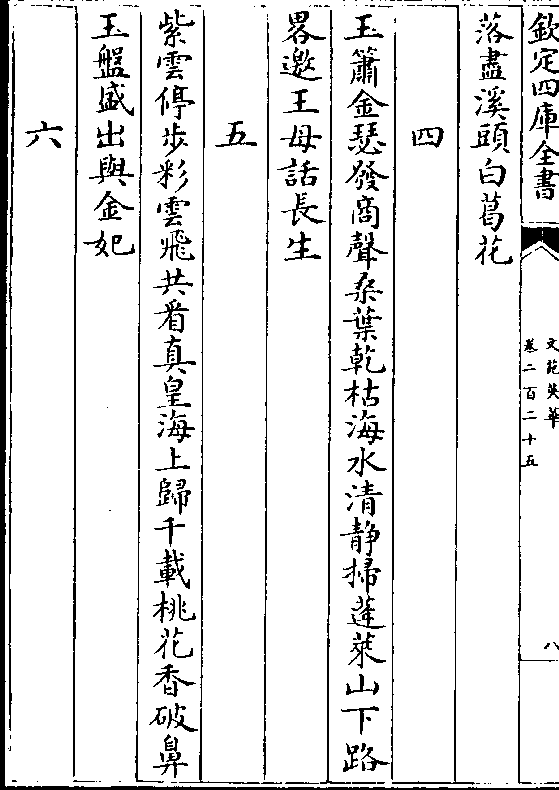 欽定四庫全書
文苑英華
卷二百二十五
八
落盡溪頭白葛花
四
玉簫金瑟發商聲桑葉乾枯海水清静掃蓬萊山下路
畧邀王母話長生
五
紫雲停步彩雲飛共看真皇海上歸千載桃花香破鼻
玉盤盛出與金妃
六